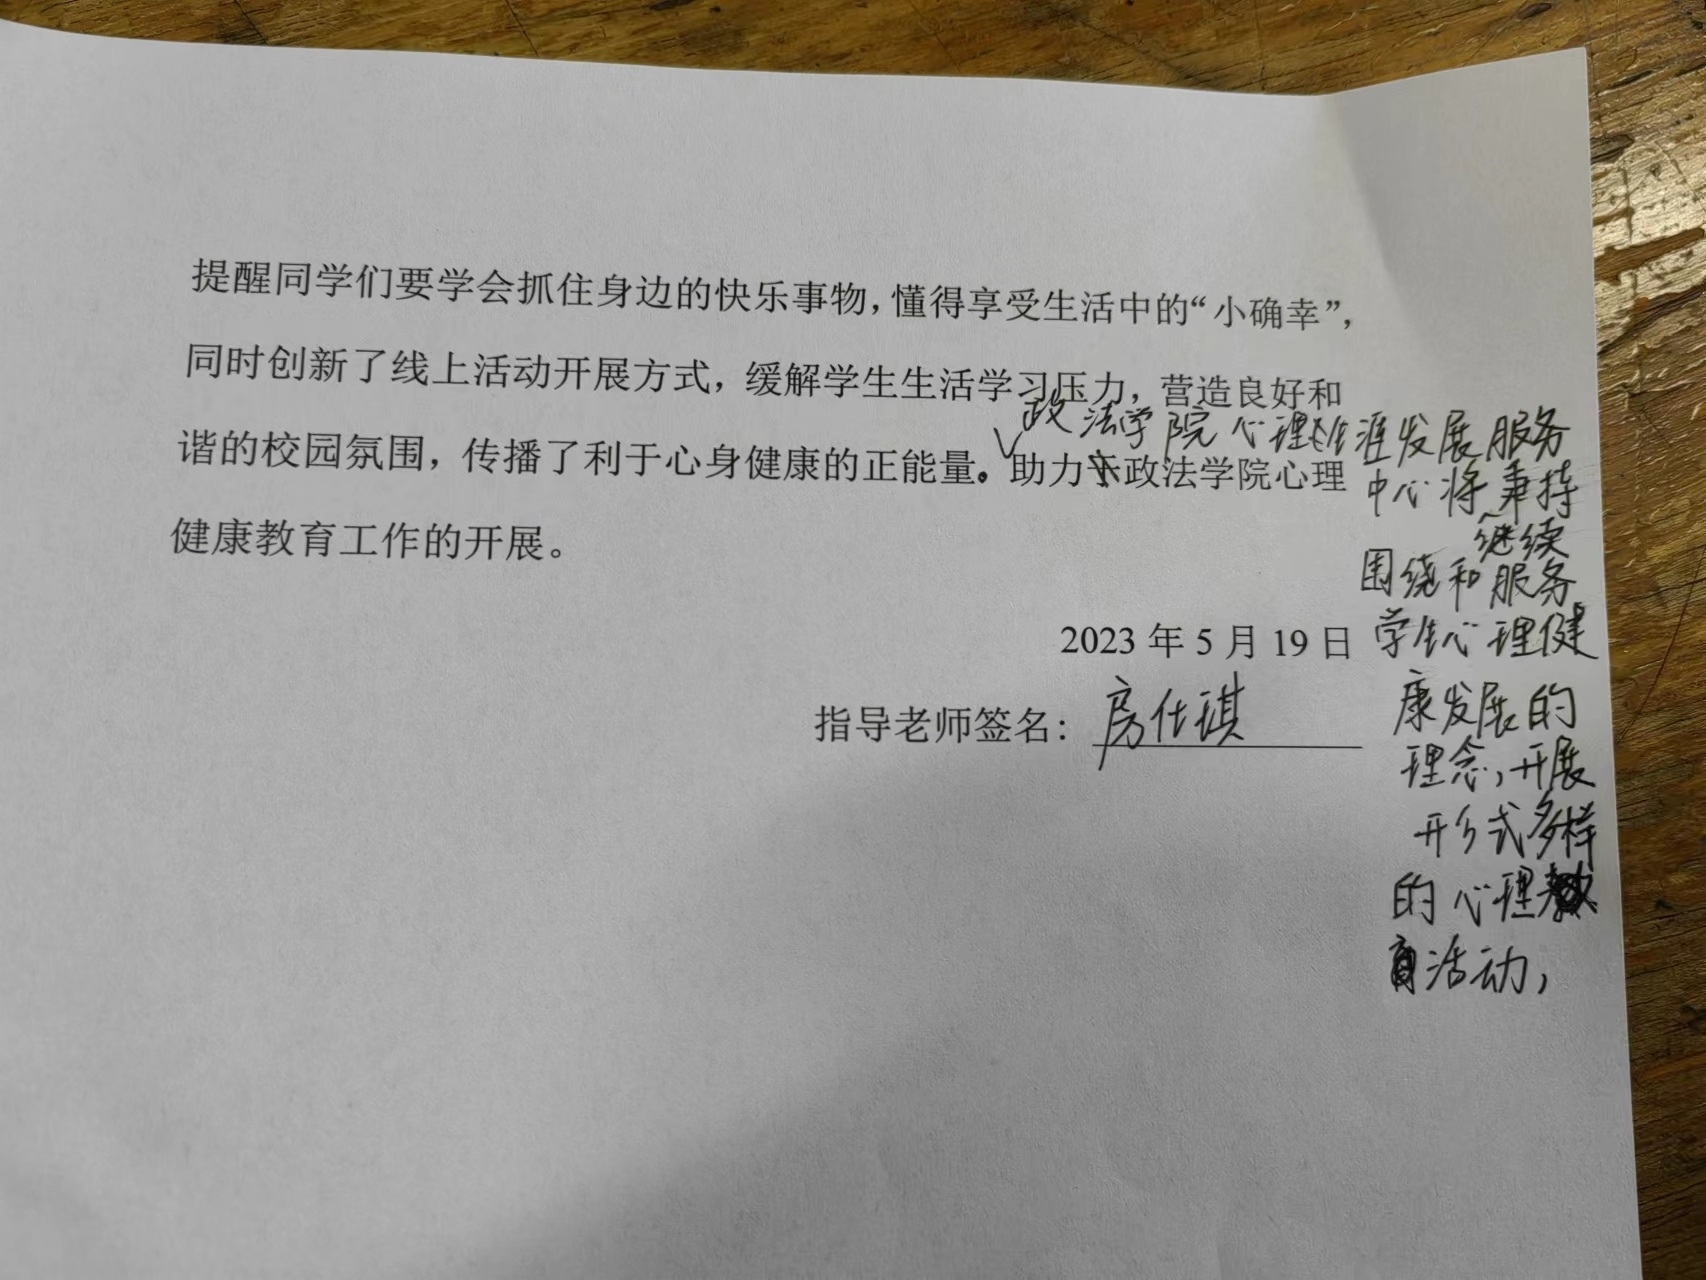 提醒同学们要学会抓住身边的快乐事物，懂得享受生活中的“小确幸”，
同时创新了线上活动开展方式，缓解学生生活学习压力，营造良好和
政法学院心理生涯发展服务
谐的校园氛围，传播了利于心身健康的正能量。助力于政法学院心理
中心将秉持
继续
健康教育工作的开展。
围绕和服务
2023 年 5 月 19 日
学生心理健
指导老师签名：房仕琪
康发展的
理念，开展
形式多样
的心理教
育活动，